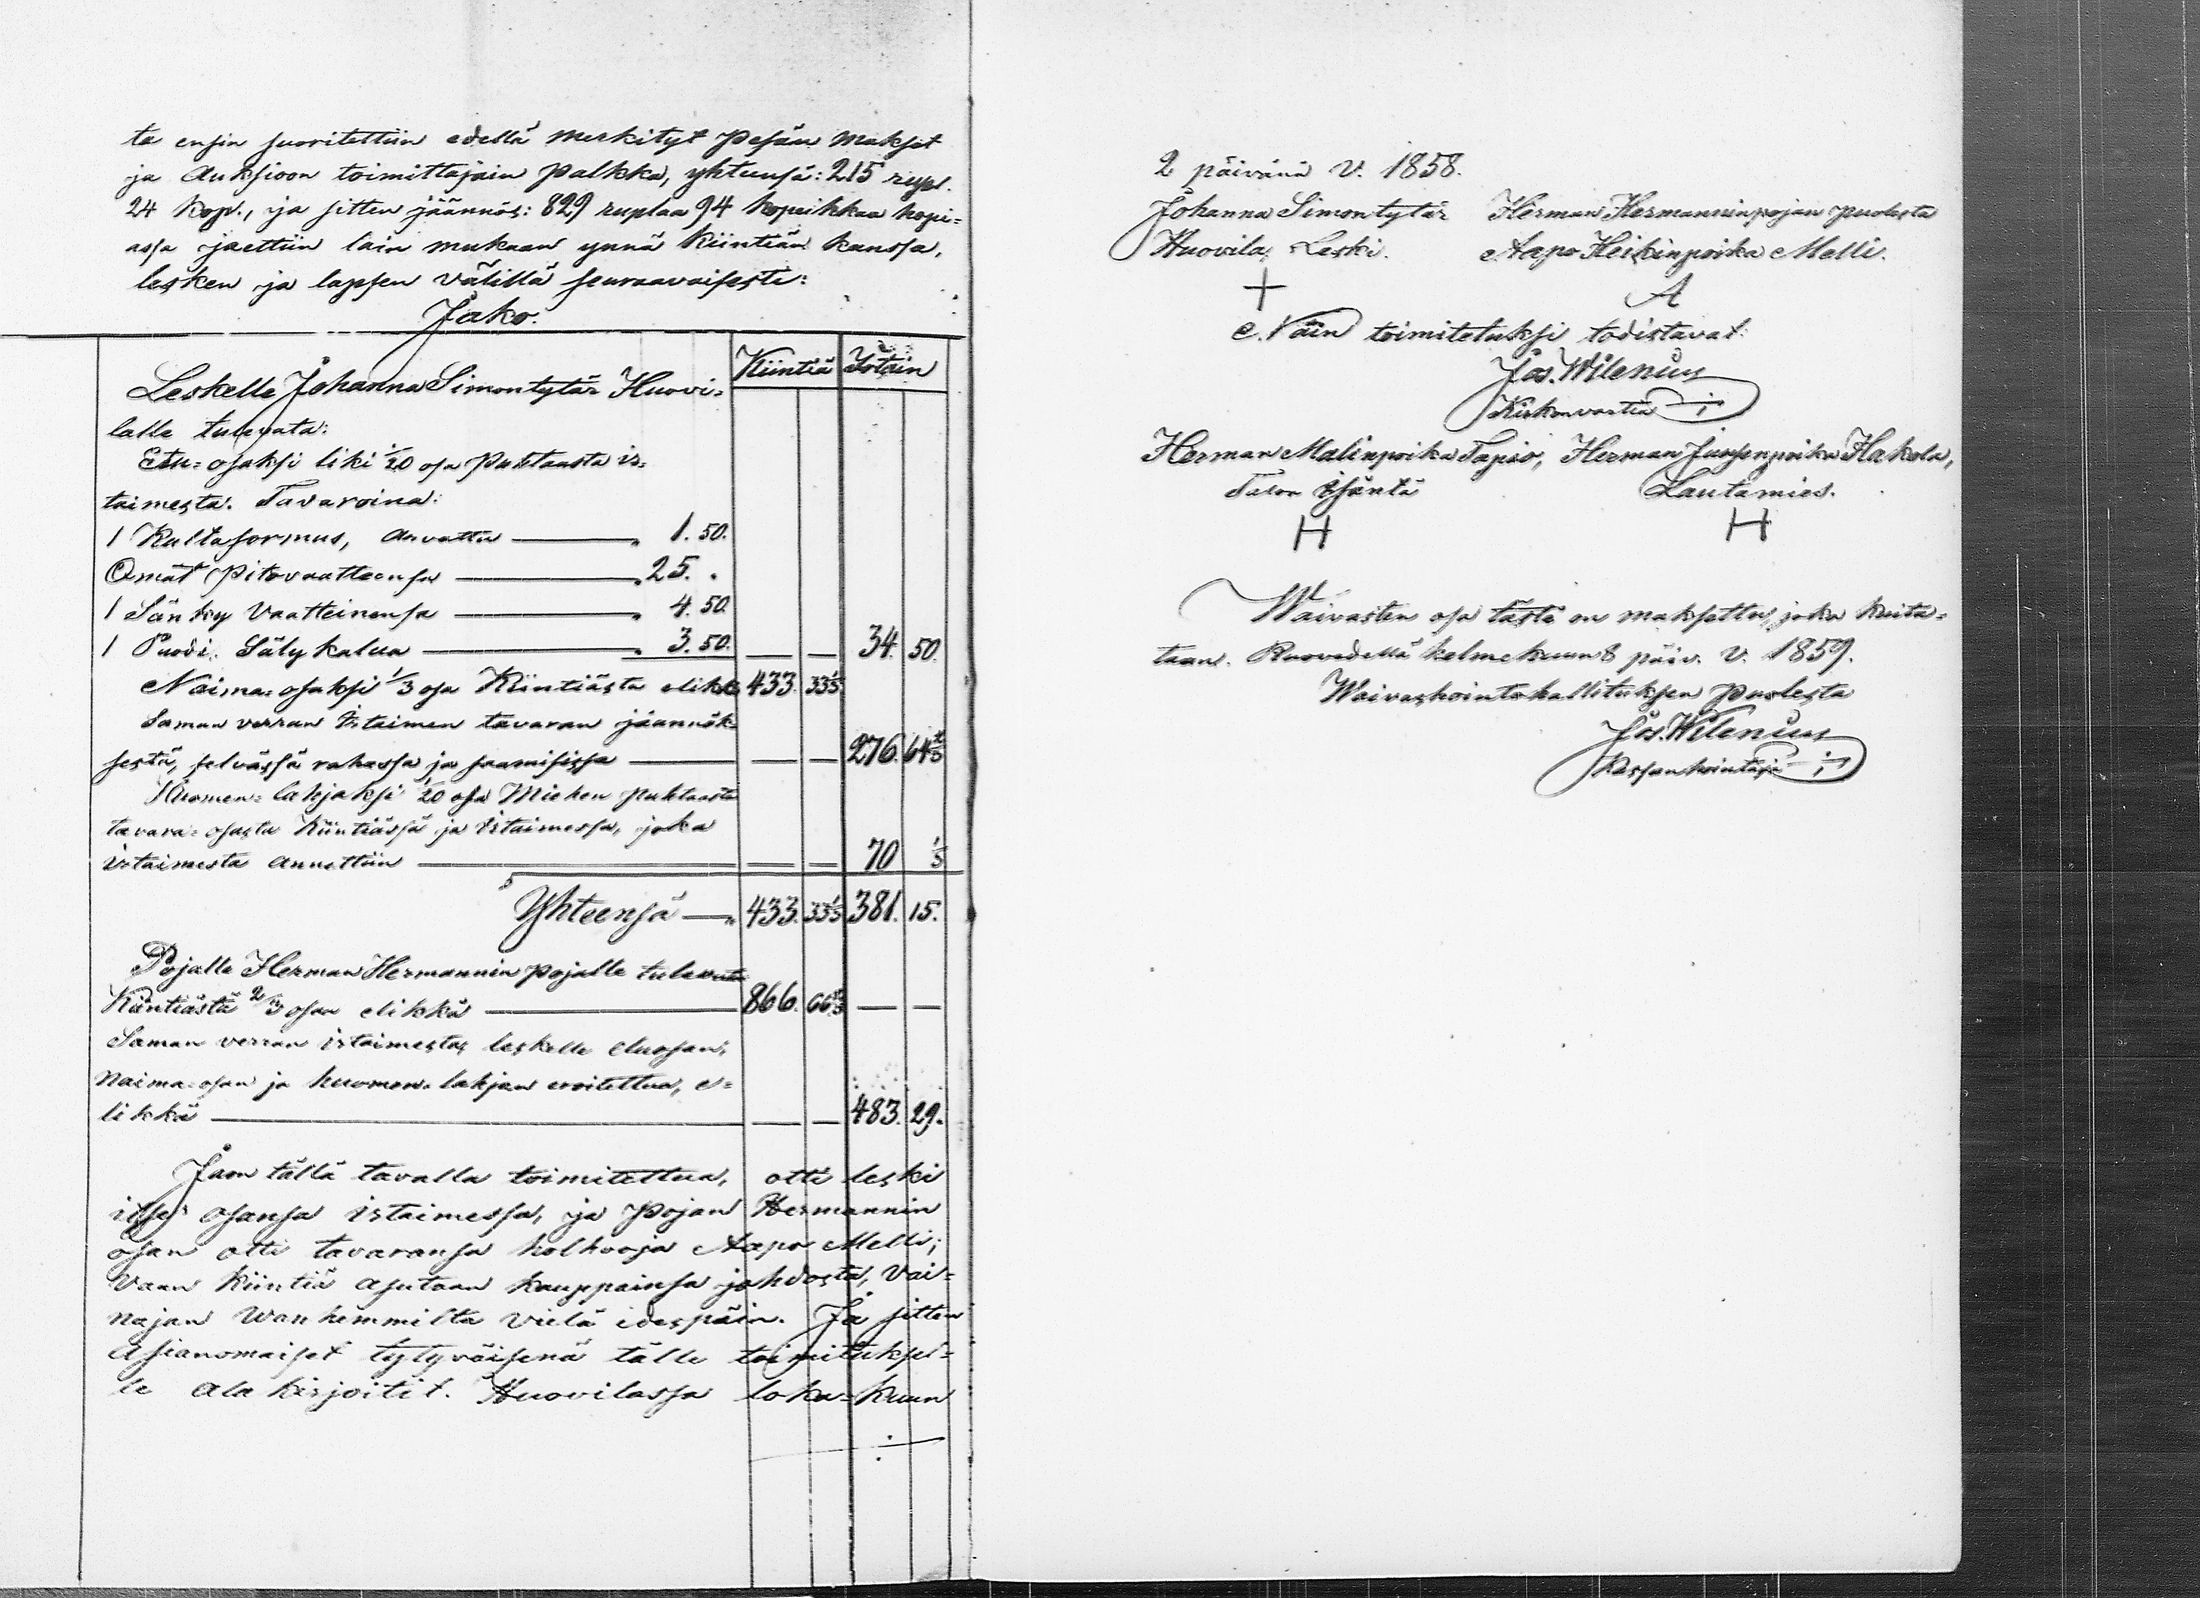 ta ensin suoritettiin edellä merkityt pesän maksot
ja Auksioon toimittajain palkka, yhteensä: 215 rupl.
24 kop., ja sitten jäännös: 829 ruplaa 94 kopeikkaa hopi=
assa jaettiin lain mukaan ynnä kiintiän kanssa,
lesken ja lapsen välillä seuraavaisesti:
Jako.
Kiintiä Irtain
Leskelle Johanna Simontytär Huovi=
lalle tulevata:
Etu=osaksi liki 1/20 osa puhtaasta ir=
taimesta. Tavaroina:
1 Kultasormus, arvattu — „ 1. 50.
Omat Pitovaatteensa — „ 25. „
1 Sänky vaatteinensa — „ 4. 50.
1 Puodi Sälykalua — „ 3. 50. — — 34. 50.
Naima=osaksi 1/3 osa Kiintiästä elikkä 433. 33 1/3
Saman verran Irtaimen tavaran jäännök=
sestä, selvässä rahassa ja saamisissa — — — 276. 64 2/3
Huomen=lahjaksi 1/20 osa Miehen puhtaasta
tavara=osasta Kiintiässä ja Irtaimessa, joka
irtaimesta annettiin — — — 70 1/3
Yhteensä — „ 433. 33 1/3 381. 15.
Pojalle Herman Hermannin pojalle tulevata
Kiintiästä 2/3 osaa elikkä — 866. 66 2/3 — —
Saman verran irtaimesta, leskelle etuosan,
naima=osan ja huomen=lahjan eroitettua, e=
likkä — — — 483. 29.
Jaon tällä tavalla toimitettua, otti leski
itse osansa irtaimessa, ja pojan Hermannin
osan otti tavaransa holhooja Aapo Melli;
vaan kiintiä asutaan kauppainsa johdosta, vai=
najan wanhemmilta vielä edespäin. Ja sitten
Asianomaiset tytyväisenä tälle toimituksel=
le ala kirjoitit. Huovilassa loka=kuun
2 päivänä v. 1858.
Johanna Simontytär Herman Hermanninpojan puolesta
Huovila, Leski. Aapo Heikinpoika Melli.
+ A
Näin toimitetuksi todistavat:
Jos. Wilenius
Kirkonvartia
Herman Matinpoika Tapio, Herman Jussinpoika Hakola,
Talon Isäntä Lautamies.
H H
Waivasten osa tästä on maksettu, joka kuita=
taan. Ruovedellä helmekuun 8 päiv. v. 1859.
Waivashointohallituksen puolesta
Jos. Wilenius
Kassanhointaja